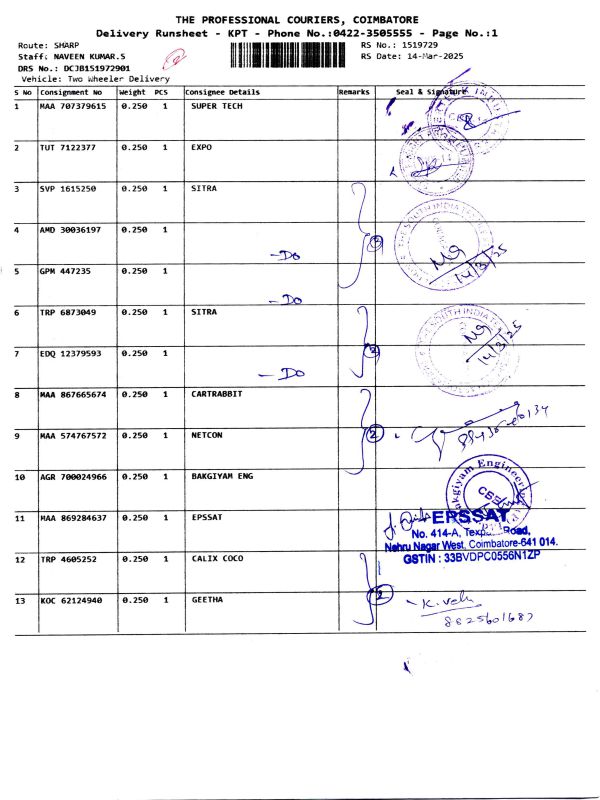 THE PROFESSIONAL COURIERS, COIMBATORE
Delivery Runsheet - KPT - Phone No.:0422-3505555 - Page No.:1
Route: SHARP
Staff: NAVEEN KUMAR.S
DRS No.: DCJB1S1972901
Vehicle: Two Wheeler Delivery
RS No.: 1519729
RS Date: 14-Mar-2025
S No Consignment No Weight PCS Consignee Details Remarks Seal & Signature
1 MAA 707379615 0.250 1 SUPER TECH
2 TUT 7122377 0.250 1 EXPO
3 SVP 1615250 0.250 1 SITRA
4 AMD 30036197 0.250 1
- Do
3
THE SOUTH INDIA
14/3/25
5 GPM 447235 0.250 1
- Do
6 TRP 6873049 0.250 1 SITRA
SOUTH INDIA
14/3/25
7 EDQ 12379593 0.250 1
- Do
2
8 MAA 867665674 0.250 1 CARTRABBIT
9 MAA 574767572 0.250 1 NETCON
2
10 AGR 700024966 0.250 1 BAKGIYAM ENG
Bakgiyam Engineering
CBE
11 MAA 869284637 0.250 1 EPSSAT
EPSSAT
No. 414-A, Road,
Nehru Nagar West, Coimbatore-641 014.
GSTIN : 33BVDPC0556N1ZP
12 TRP 4605252 0.250 1 CALIX COCO
2
13 KOC 62124940 0.250 1 GEETHA
K. Velu
8825601687